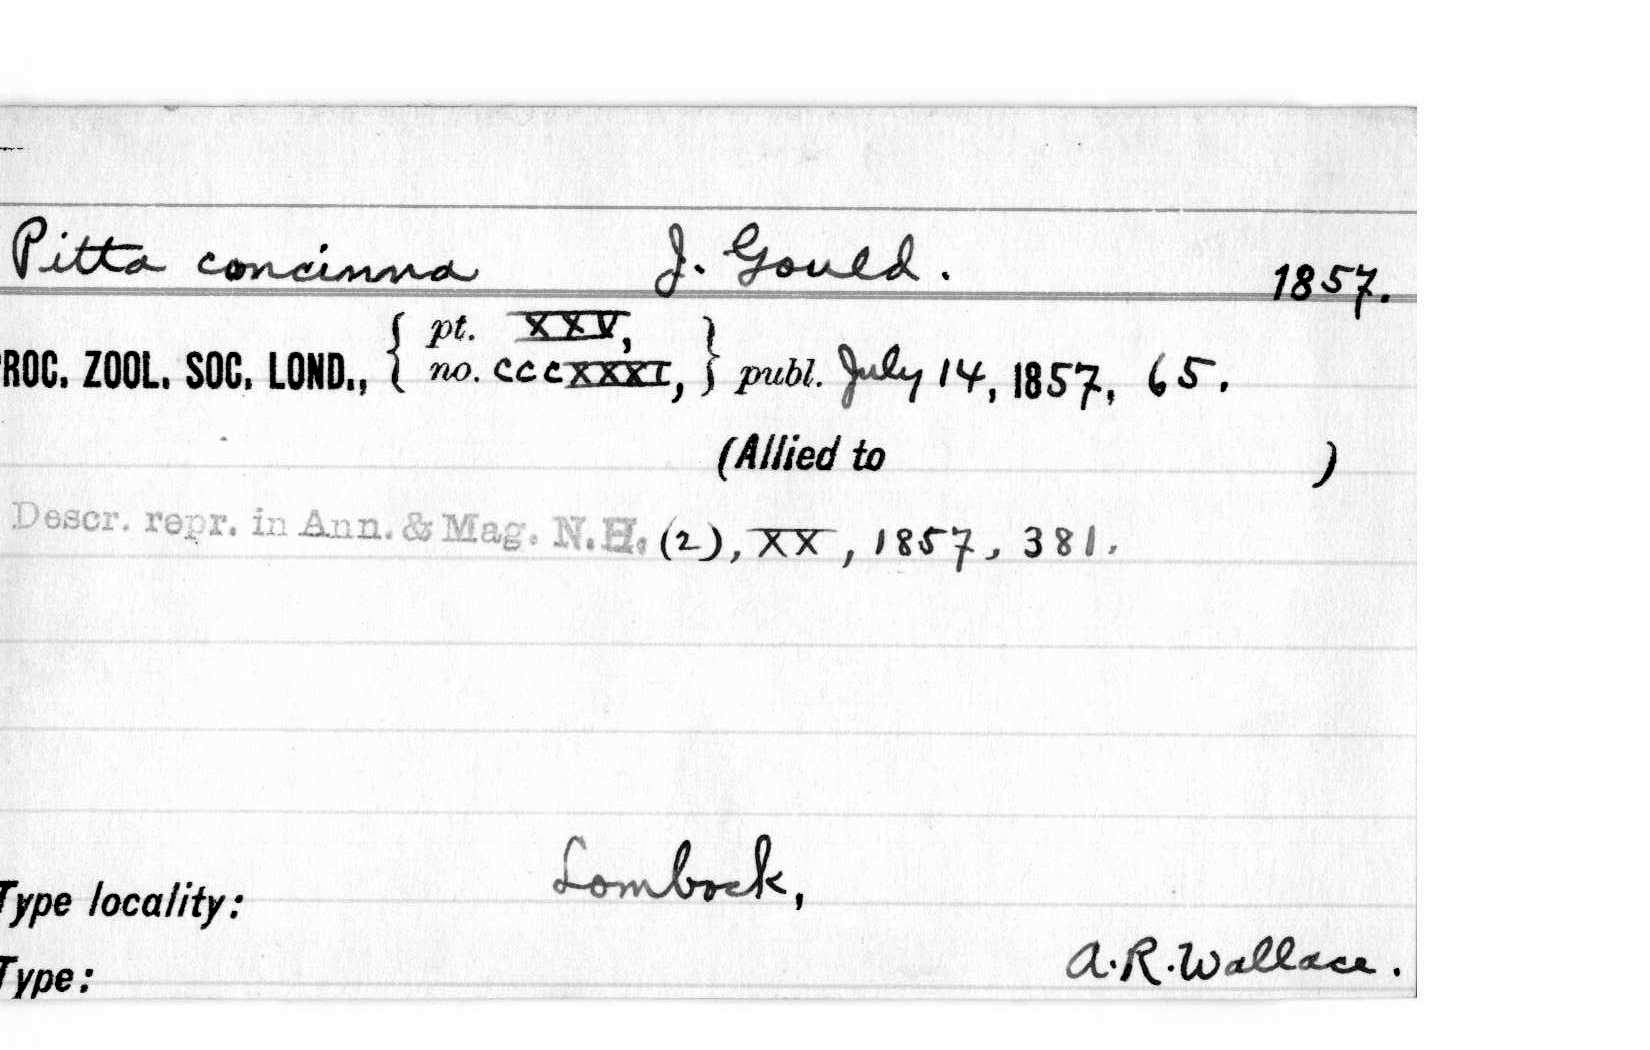 Pitta concinna J. Gould. 1857.
ROC. ZOOL. SOC. LOND., { pt. XXV, no. CCCXXXI, } publ. July 14, 1857, 65.
(Allied to )
Descr. repr. in Ann. & Mag. N.H. (2), XX, 1857, 381.
Lombock,
Type locality:
A.R. Wallace.
Type: